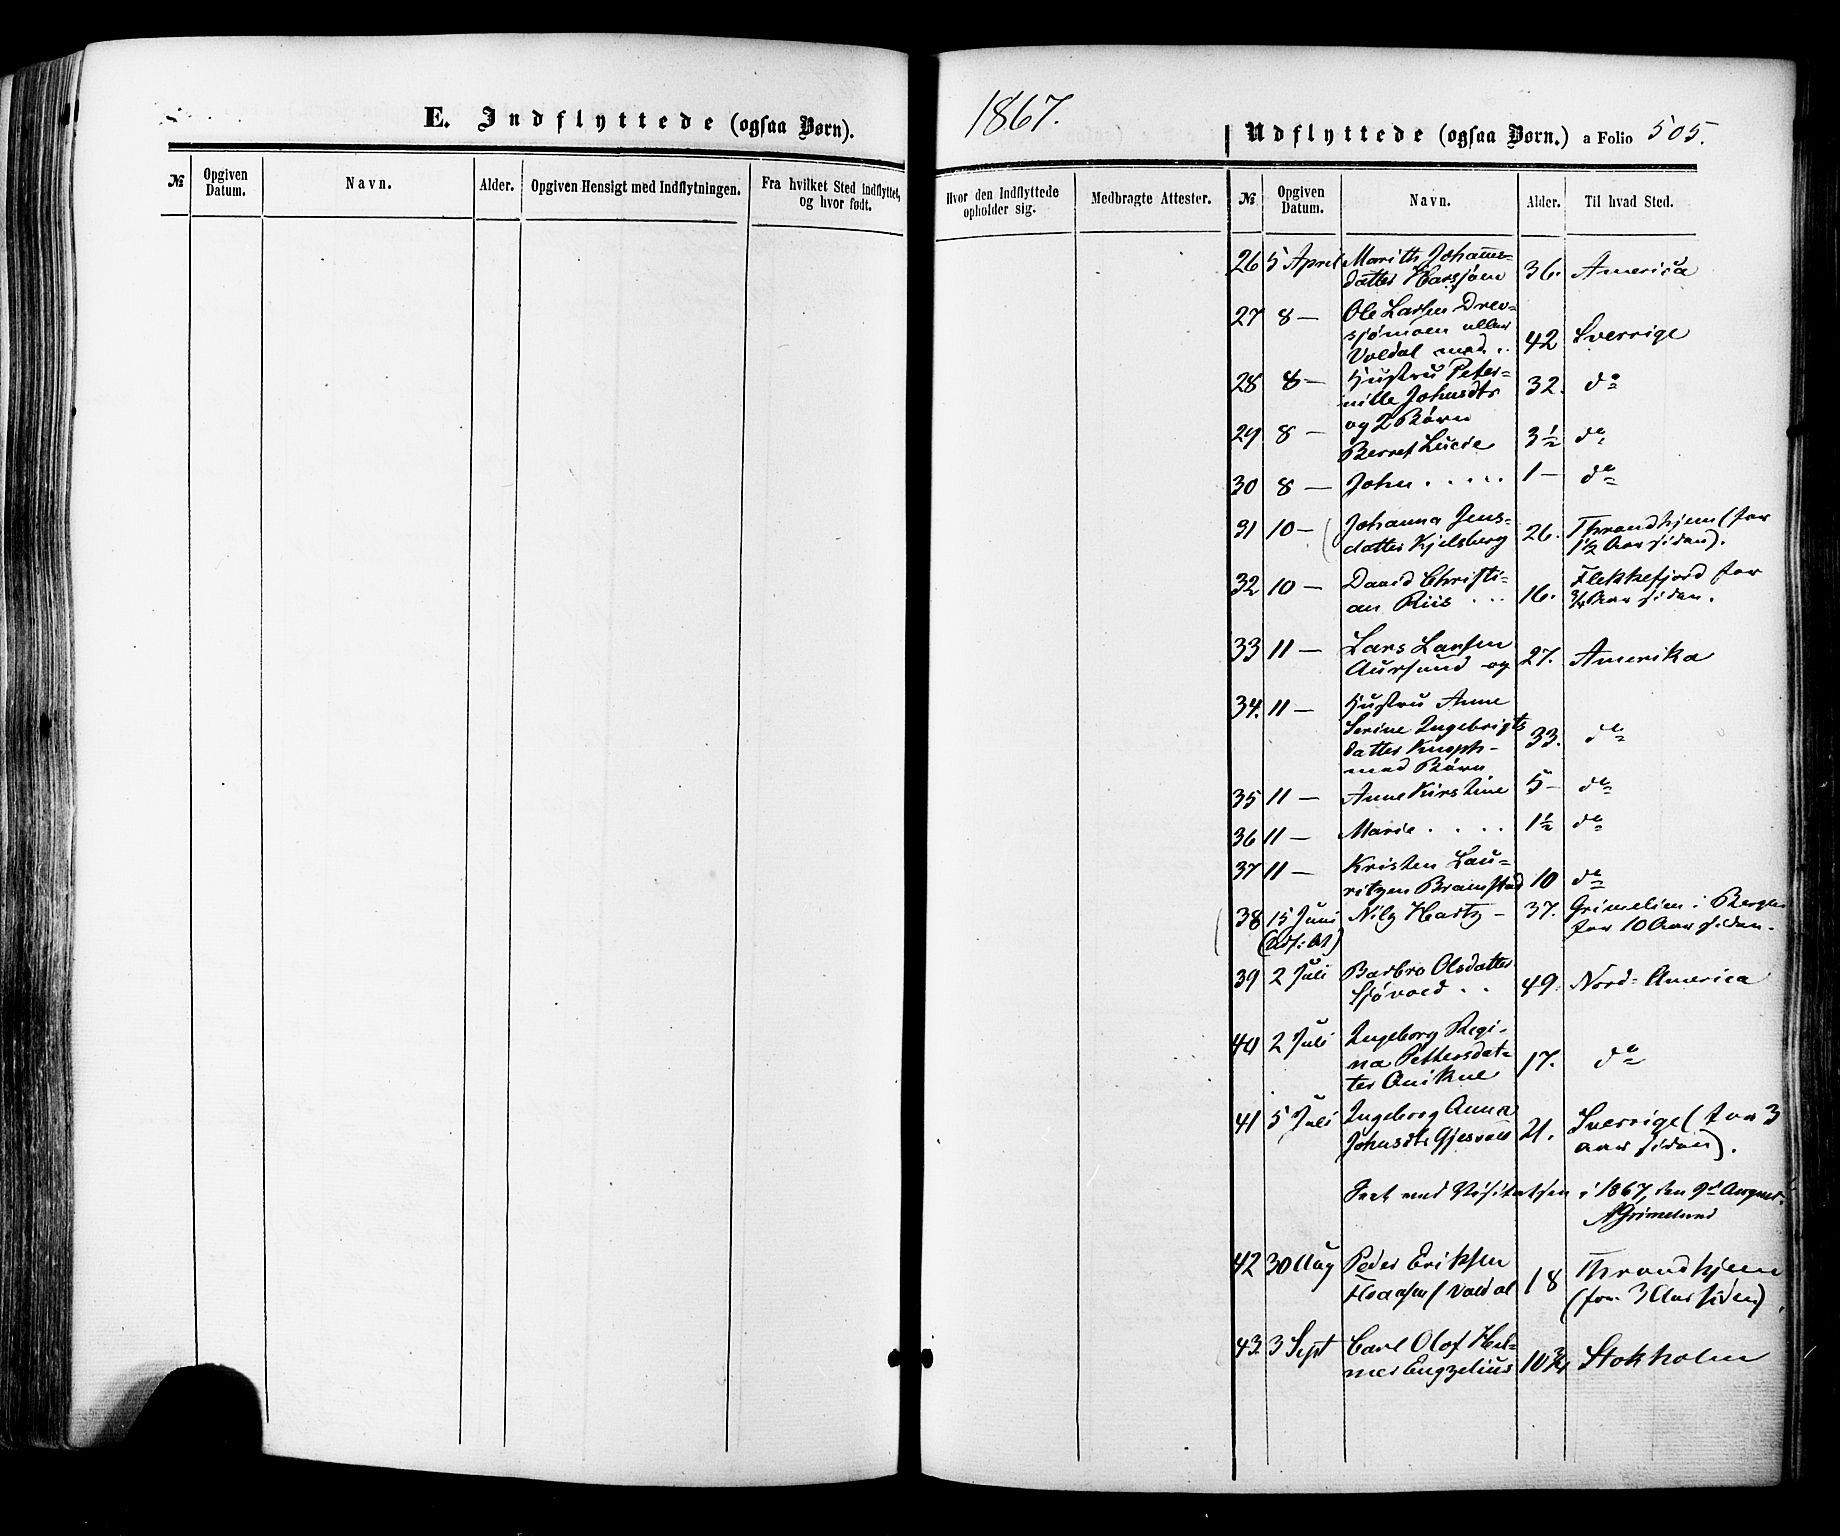 E. Indflyttede (ogsaa Børn).
1867.
Udflyttede (ogsaa Børn.) a Folio 505.
№ Opgiven Datum. Navn. Alder. Opgiven Hensigt med Indflytningen. Fra hvilket Sted indflyttet, og hvor født.
Hvor den Indflyttede opholder sig. Medbragte Attester. № Opgiven Datum. Navn. Alder. Til hvad Sted.
26 5 April Marith Johannes-
datter Harsjøen 36. America
27 8 — Ole Larsen Drev-
sjømoen eller
Voldal med 42 Sverrige
28 8 — Hustru Peter-
nille Johnsdtr 32. do
og 2 Børn
29 8 — Berret Lucie 3½ do
30 8 — John . . . . . 1 — do
31 10 — Johanna Jens-
datter Kjelsberg 26. Throndhjem (for
1½ Aar siden).
32 10 — David Christi-
an Riis . . . 16. Flekkefjord for
¾ Aar siden.
33 11 — Lars Larsen
Aursund og 27. Amerika
34. 11 — Hustru Anne
Serine Ingebrigts
datter Knoph 33. do
med Børn
35 11 — Anne Kirstine 5 — do
36 11 — Marie . . . . 1½ do
37 11 — Kristen Lau-
ritzen Bramstad 10 do
38 15 Juni Nils Hartz — 37. Grimelien i Bergen
for 10 Aar siden.
39 2 Juli Barbro Olsdatter
Sjøvold . . 49. Nord-America
40 2 Juli Ingeborg Regi-
na Pettersdat-
ter 17. do
41 5 Juli Ingeborg Anna
Johnsdtr Gjesvold 21. Sverrige (for 3
aar siden).
Seet ved Visitatsen i 1867, den 9d August.
AGrimelund
42 30 Aug Peder Eriksen
Floasen/Voldal 18 Throndhjem
(for 3 Aar siden).
43. 3 Sept Carl Olof Hel-
mer Engzelius 10¾ Stokholm